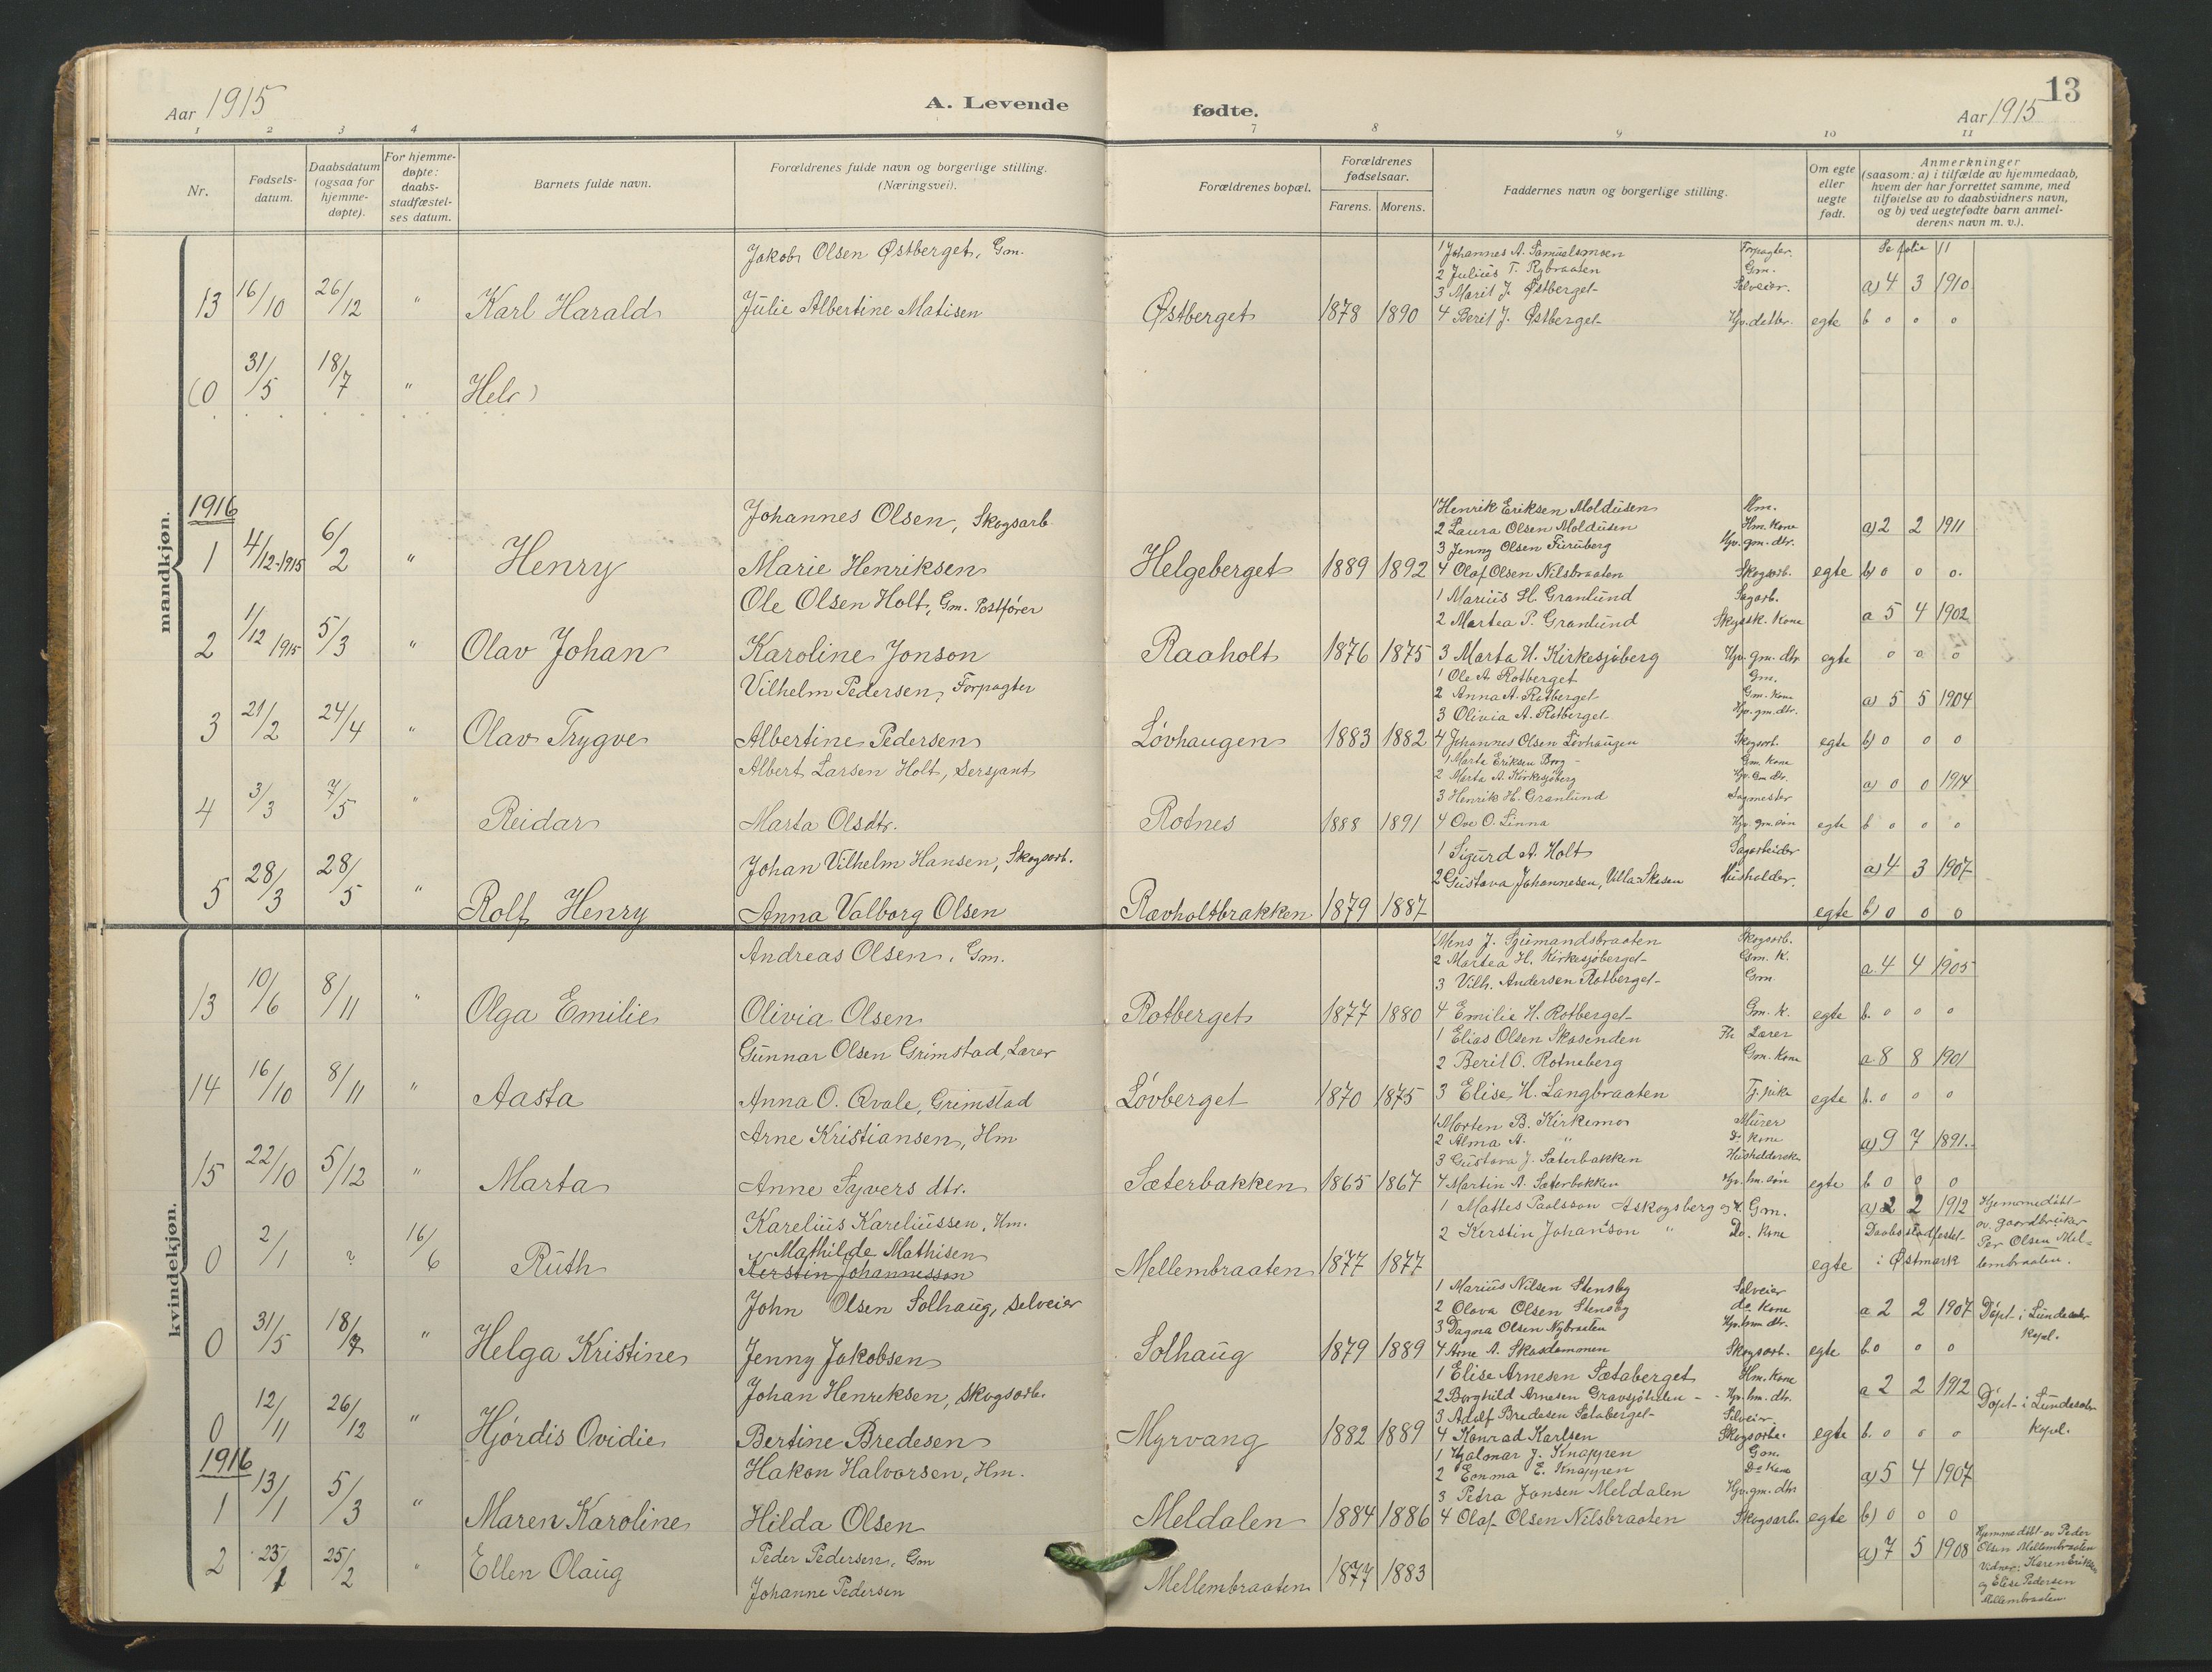 Aar 1915
A. Levende
fødte.
Aar 1915
13
1 2 3 4 7 8 9 10 11
Nr.
Fødsels-
datum.
Daabsdatum
(ogsaa for
hjemme-
døpte).
For hjemme-
døpte:
daabs-
stadfæstel-
ses datum.
Barnets fulde navn.
Forældrenes fulde navn og borgerlige stilling.
(Næringsvei).
Forældrenes bopæl.
Forældrenes
fødselsaar.
Farens. Morens.
Faddernes navn og borgerlige stilling.
Om egte
eller
uegte
født.
Anmerkninger
(saasom: a) i tilfælde av hjemmedaab,
hvem der har forrettet samme, med
tilføielse av to daabsvidners navn,
og b) ved uegtefødte barn anmel-
derens navn m. v.).
mandkjøn.
Jakob Olsen Østberget, Gm.
1 Johannes A. Samuelsmoen Forpagter.
Se folie 11
2 Julius T. Rybraaten Gm.
a) 4 3 1910
3 Marit J. Østberget Selveier.
13 16/10 26/12 " Karl Harald Julie Albertine Matisen Østberget 1878 1890 4 Berit J. Østberget egte b o o o
(0 31/5 18/7 " Hel)
1916
Johannes Olsen, Skogsarb.
1 Henrik Eriksen Moldusen Hm.
2 Laura Olsen Moldusen Hm. Kone
a) 2 2 1911
3 Jenny Olsen Furuberg Hjv. gm. dtr.
1 4/12-1915 6/2 " Henry Marie Henriksen Helgeberget 1889 1892 4 Olaf Olsen Nilsbraaten Skogsarb. egte b) o o o.
Ole Olsen Holt, Gm. Postfører
1 Marius H. Granlund Sagarb.
2 Martea P. Granlund Kone
a 5 4 1902
2 1/12 1915 5/3 " Olav Johan Karoline Jonson Raaholt 1876 1875 3 Marta H. Kirkesjøberg Hjv. gm. dtr egte o o o
Vilhelm Pedersen, Forpagter
1 Ole A Rotberget Gm.
2 Anna A. Rotberget Gm. Kone
a) 5 5 1904
3 Olivia A. Rotberget Hjv. gm. dtr.
3 21/2 24/4 " Olav Trygve Albertine Pedersen Løvhaugen 1883 1882 4 Johannes Olsen Løvhaugen Skogsarb. egte b) o o o
Albert Larsen Holt, Sersjant
1 Marta Eriksen Berg Gm. Kone
2 Marta A. Kirkesjøberg Hjv. Gm. dtr.
a) o o 1914
3 Henrik H. Granlund Sagmester
4 3/3 7/5 " Reidar Marta Olsdtr. Rotnes 1888 1891 4 Ove O. Linna Hjv. gm. søn egte b o o o
Johan Vilhelm Hansen, Skogsarb.
1 Sigurd A. Holt Sagarbeider
2 Gustava Johannesen, Villa Skasen Husholder.
a) 4 3 1907
5 28/3 28/5 " Rolf Henry Anna Valborg Olsen Rævholtbrakken 1879 1887 egte b) o o o
kvindekjøn.
Andreas Olsen, Gm.
1 Mens J. Sjumandsbraaten Skogsarb.
2 Martea H. Kirkesjøberget Gm. K.
a. 4 4 1905
3 Vilh. Andersen Rotberget Gm
13 10/6 8/11 " Olga Emilie Olivia Olsen Rotberget 1877 1880 4 Emilie H. Rotberget Gm. K. egte b. o o o
Gunnar Olsen Grimstad, Lærer
1 Elias Olsen Skasenden Fh. Lærer
2 Berit O. Rotneberg Gm. Kone
a 8 8 1901
14 16/10 8/11 " Aasta Anna O. Qvale, Grimstad Løvberget 1870 1875 3 Elise H. Langbraaten Tj. pike egte b. o o o
Arne Kristiansen, Hm
1 Morten B. Kirkemo Murer
2 Alma A. " Do Kone
a) 9 7 1891.
3 Gustava J. Sæterbakken Husholderske
15 22/10 5/12 " Marta Anne Syvers dtr. Sæterbakken 1865 1867 4 Martin A. Sæterbakken Hjv. hm. søn egte b o o o
Karelius Kareliussen, Hm.
1 Mattes Paulsson Askogsberg og H. Gm.
a) 2 2 1912 Hjemmedöbt
2 Kerstin Johanson " Do. Kone
Daabstadfestet
av gaardbruker
Mathilde Mathisen
Per Olsen Mel-
0 2/1 ? 16/6 Ruth Kerstin Johannesson Mellembraaten 1877 1877 egte i Østmark lembraaten.
John Olsen Solhaug, Selveier
1 Marius Nilsen Stensby Selveier
2 Olava Olsen Stensby do Kone
a 2 2 1907 Døpt i Lundersæter
3 Dagna Olsen Nybraaten
Kapel.
0 31/5 18/7 " Helga Kristine Jenny Jakobsen Solhaug 1879 1889 4 Arne A. Skasdammen Skogsarb. egte b. o o o
Johan Henriksen, Skogsarb.
1 Elise Arnesen Sætaberget Hm. Kone
2 Borghild Arnesen Gravsjøhalen Hjv. hm. dtr.
a 2 2 1912 Døpt i Lundersæter
3 Adolf Bredesen Sætaberget Selveier
Kapel.
0 12/11 26/12 " Hjørdis Ovidie Bertine Bredesen Myrvang 1882 1889 4 Konrad Karlsen Skogsarb. egte b. o o o
1916
Hakon Halvorsen, Hm.
1 Hjalmar J. Knappen Gm.
2 Emma E. Knappen Do Kone
a) 5 4 1907
3 Petra Jansen Meldalen Hjv. gm. dtr
1 13/1 5/3 " Maren Karoline Hilda Olsen Meldalen 1884 1886 4 Olaf Olsen Nilsbraaten Skogsarb. egte b) o o o
Peder Pedersen, Gm
a) 7 5 1908 Hjemmedöbt av Peder
Olsen Mellembraaten
2 23/1 25/2 " Ellen Olaug Johanne Pedersen Mellembraaten 1877 1883
Vidner: Karen Eriksen
og Elise Pedersen
Mellembraaten.